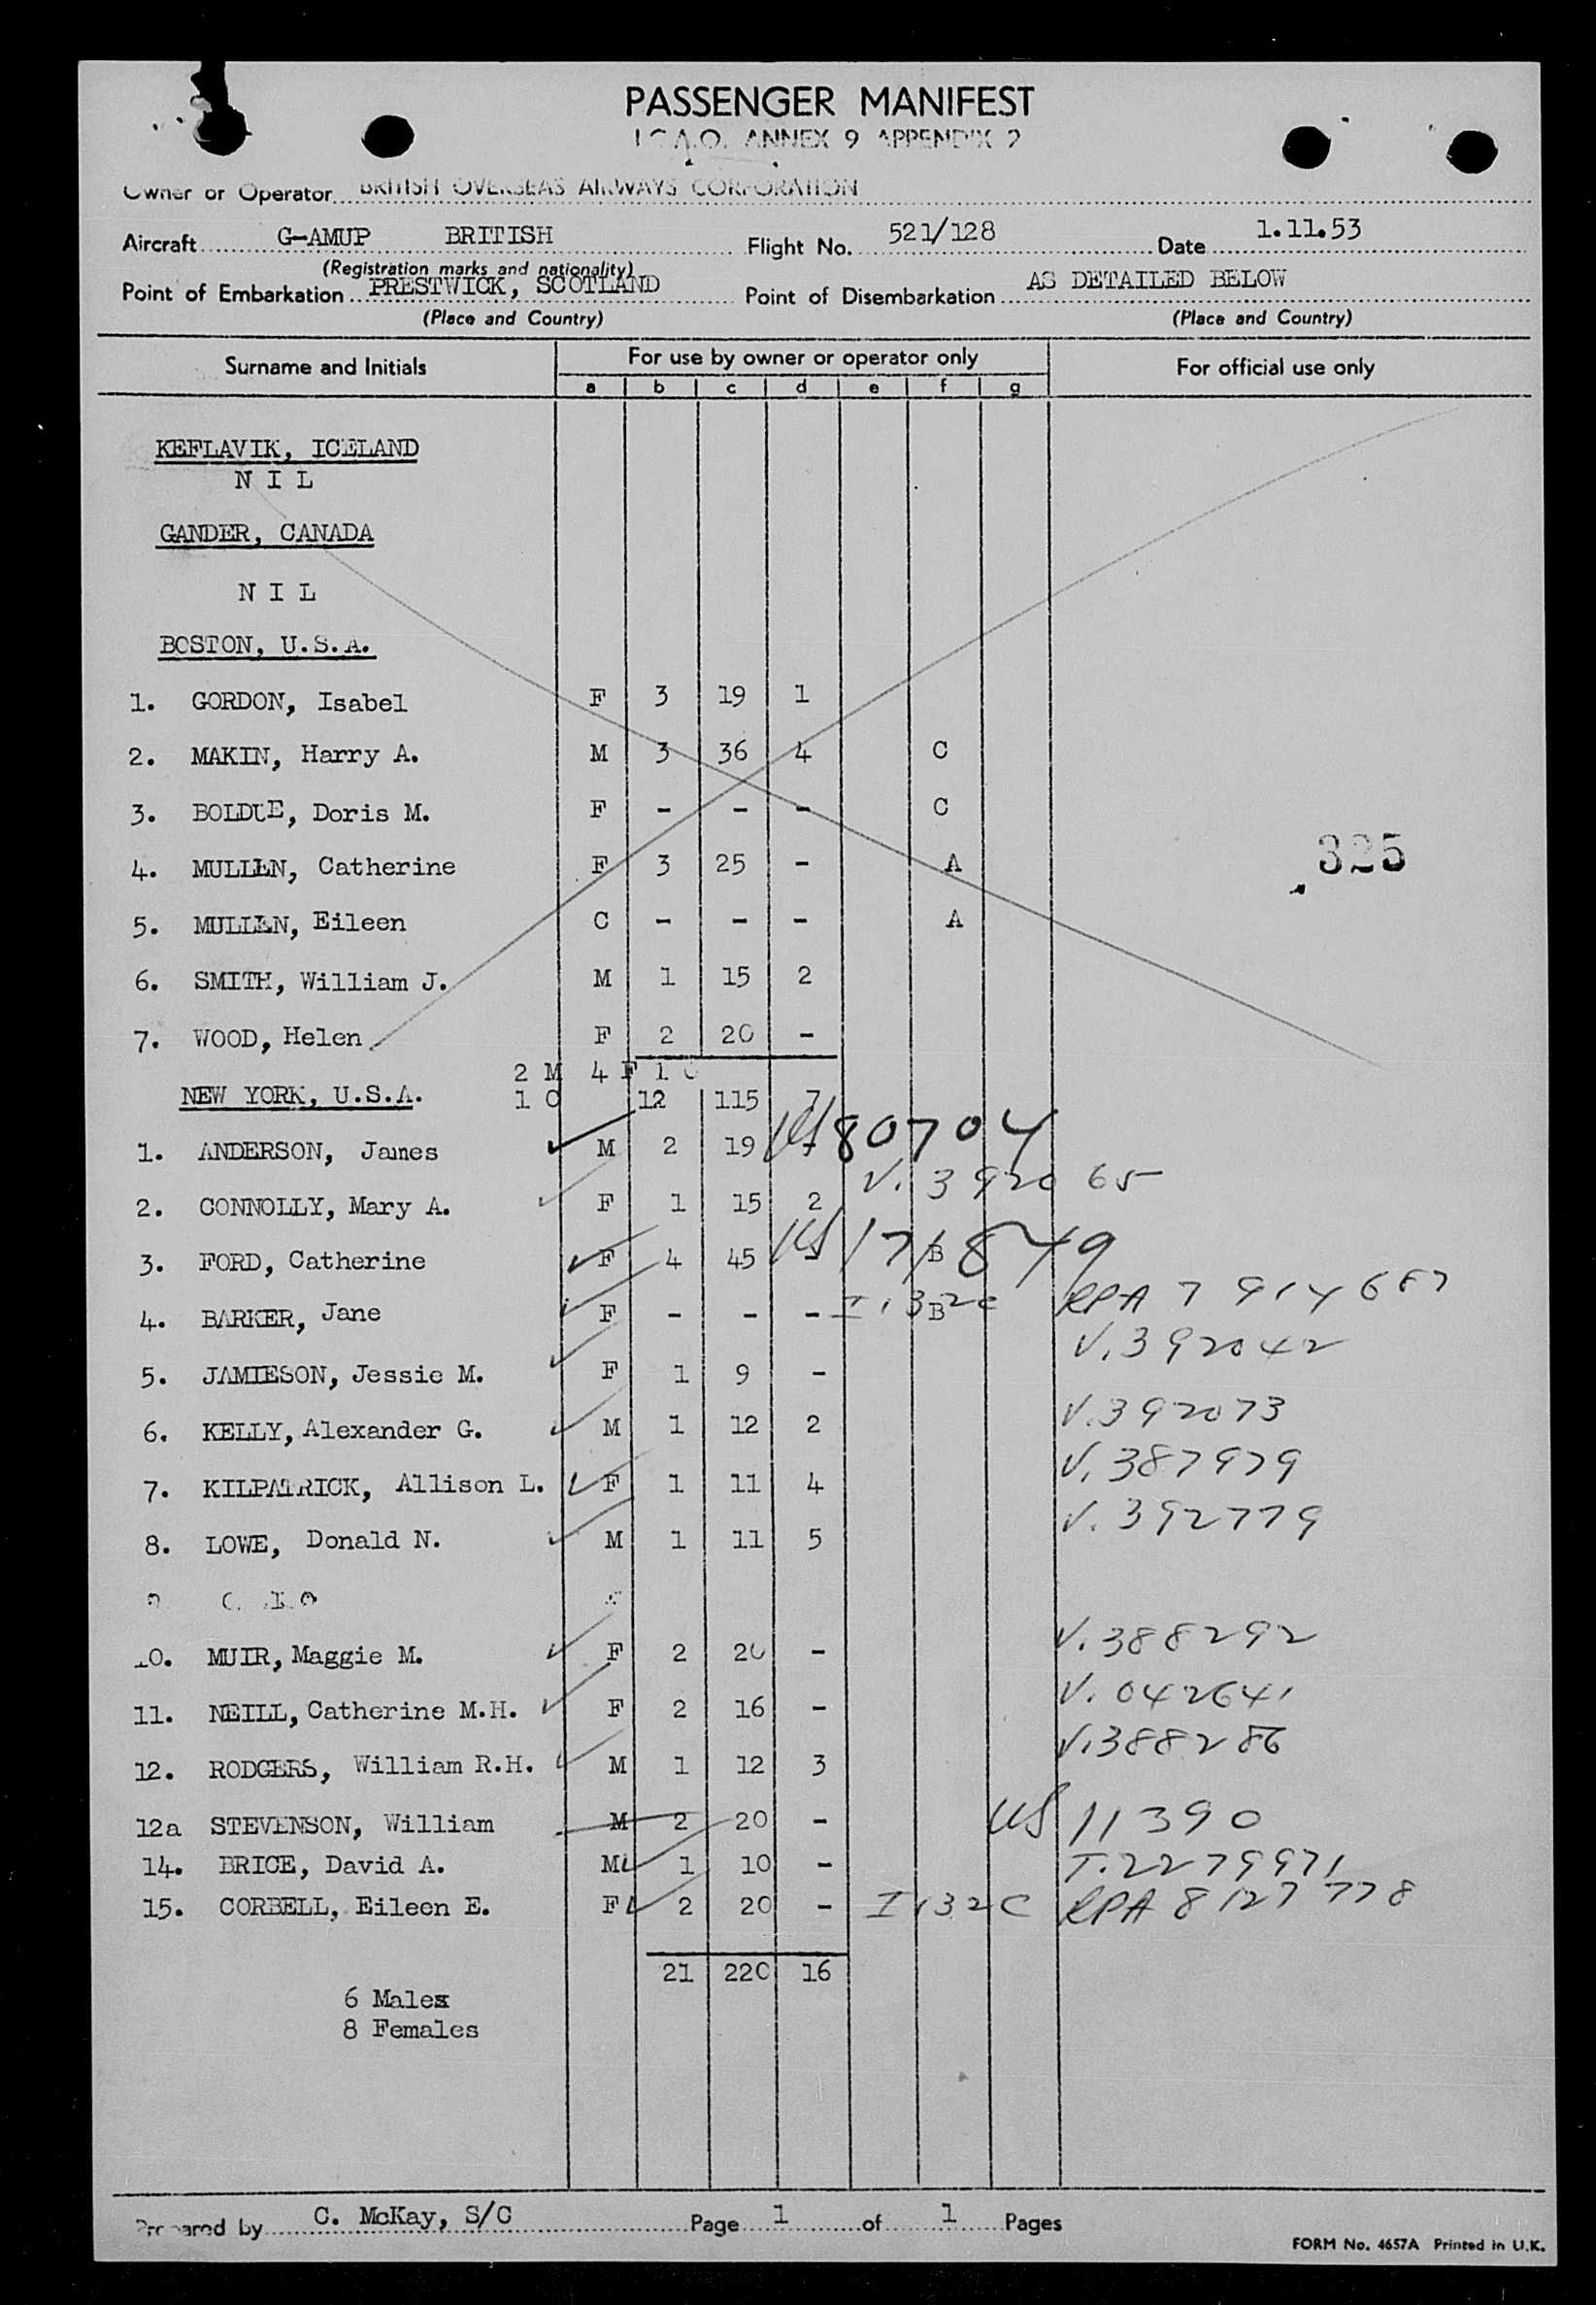 PASSENGER MANIFEST
I.C.A.O. ANNEX 9 APPENDIX 2
Owner or Operator BRITISH OVERSEAS AIRWAYS CORPORATION
Aircraft G-AMUP BRITISH Flight No. 521/128 Date 1.11.53
(Registration marks and nationality)
Point of Embarkation PRESTWICK, SCOTLAND Point of Disembarkation AS DETAILED BELOW
(Place and Country) (Place and Country)
Surname and Initials For use by owner or operator only For official use only
a b c d e f g
KEFLAVIK, ICELAND
N I L
GANDER, CANADA
N I L
BOSTON, U.S.A.
1. GORDON, Isabel F 3 19 1
2. MAKIN, Harry A. M 3 36 4 C
3. BOLDUE, Doris M. F - - - C
325
4. MULLEN, Catherine F 3 25 - A
5. MULLEN, Eileen C - - - A
6. SMITH, William J. M 1 15 2
7. WOOD, Helen F 2 20 -
2 M 4 F 1 C
NEW YORK, U.S.A. 1 C 12 115 7
1. ANDERSON, James M 2 19 - US 80704
2. CONNOLLY, Mary A. F 1 15 2 V. 392065
3. FORD, Catherine F 4 45 - B US 171849
4. BARKER, Jane F - - - B I 132C RPA 7 914 687
5. JAMIESON, Jessie M. F 1 9 - V. 392042
6. KELLY, Alexander G. M 1 12 2 V. 392073
7. KILPATRICK, Allison L. F 1 11 4 V. 387979
8. LOWE, Donald N. M 1 11 5 V. 392779
10. MUIR, Maggie M. F 2 20 - V. 388292
11. NEILL, Catherine M.H. F 2 16 - V. 042641
12. RODGERS, William R.H. M 1 12 3 V. 388286
12a STEVENSON, William M 2 20 - US 11390
14. BRICE, David A. M 1 10 - T. 2279971
15. CORBELL, Eileen E. F 2 20 - I 132C RPA 8 127 778
21 220 16
6 Males
8 Females
Prepared by C. McKay, S/C Page 1 of 1 Pages
FORM No. 4657A Printed in U.K.